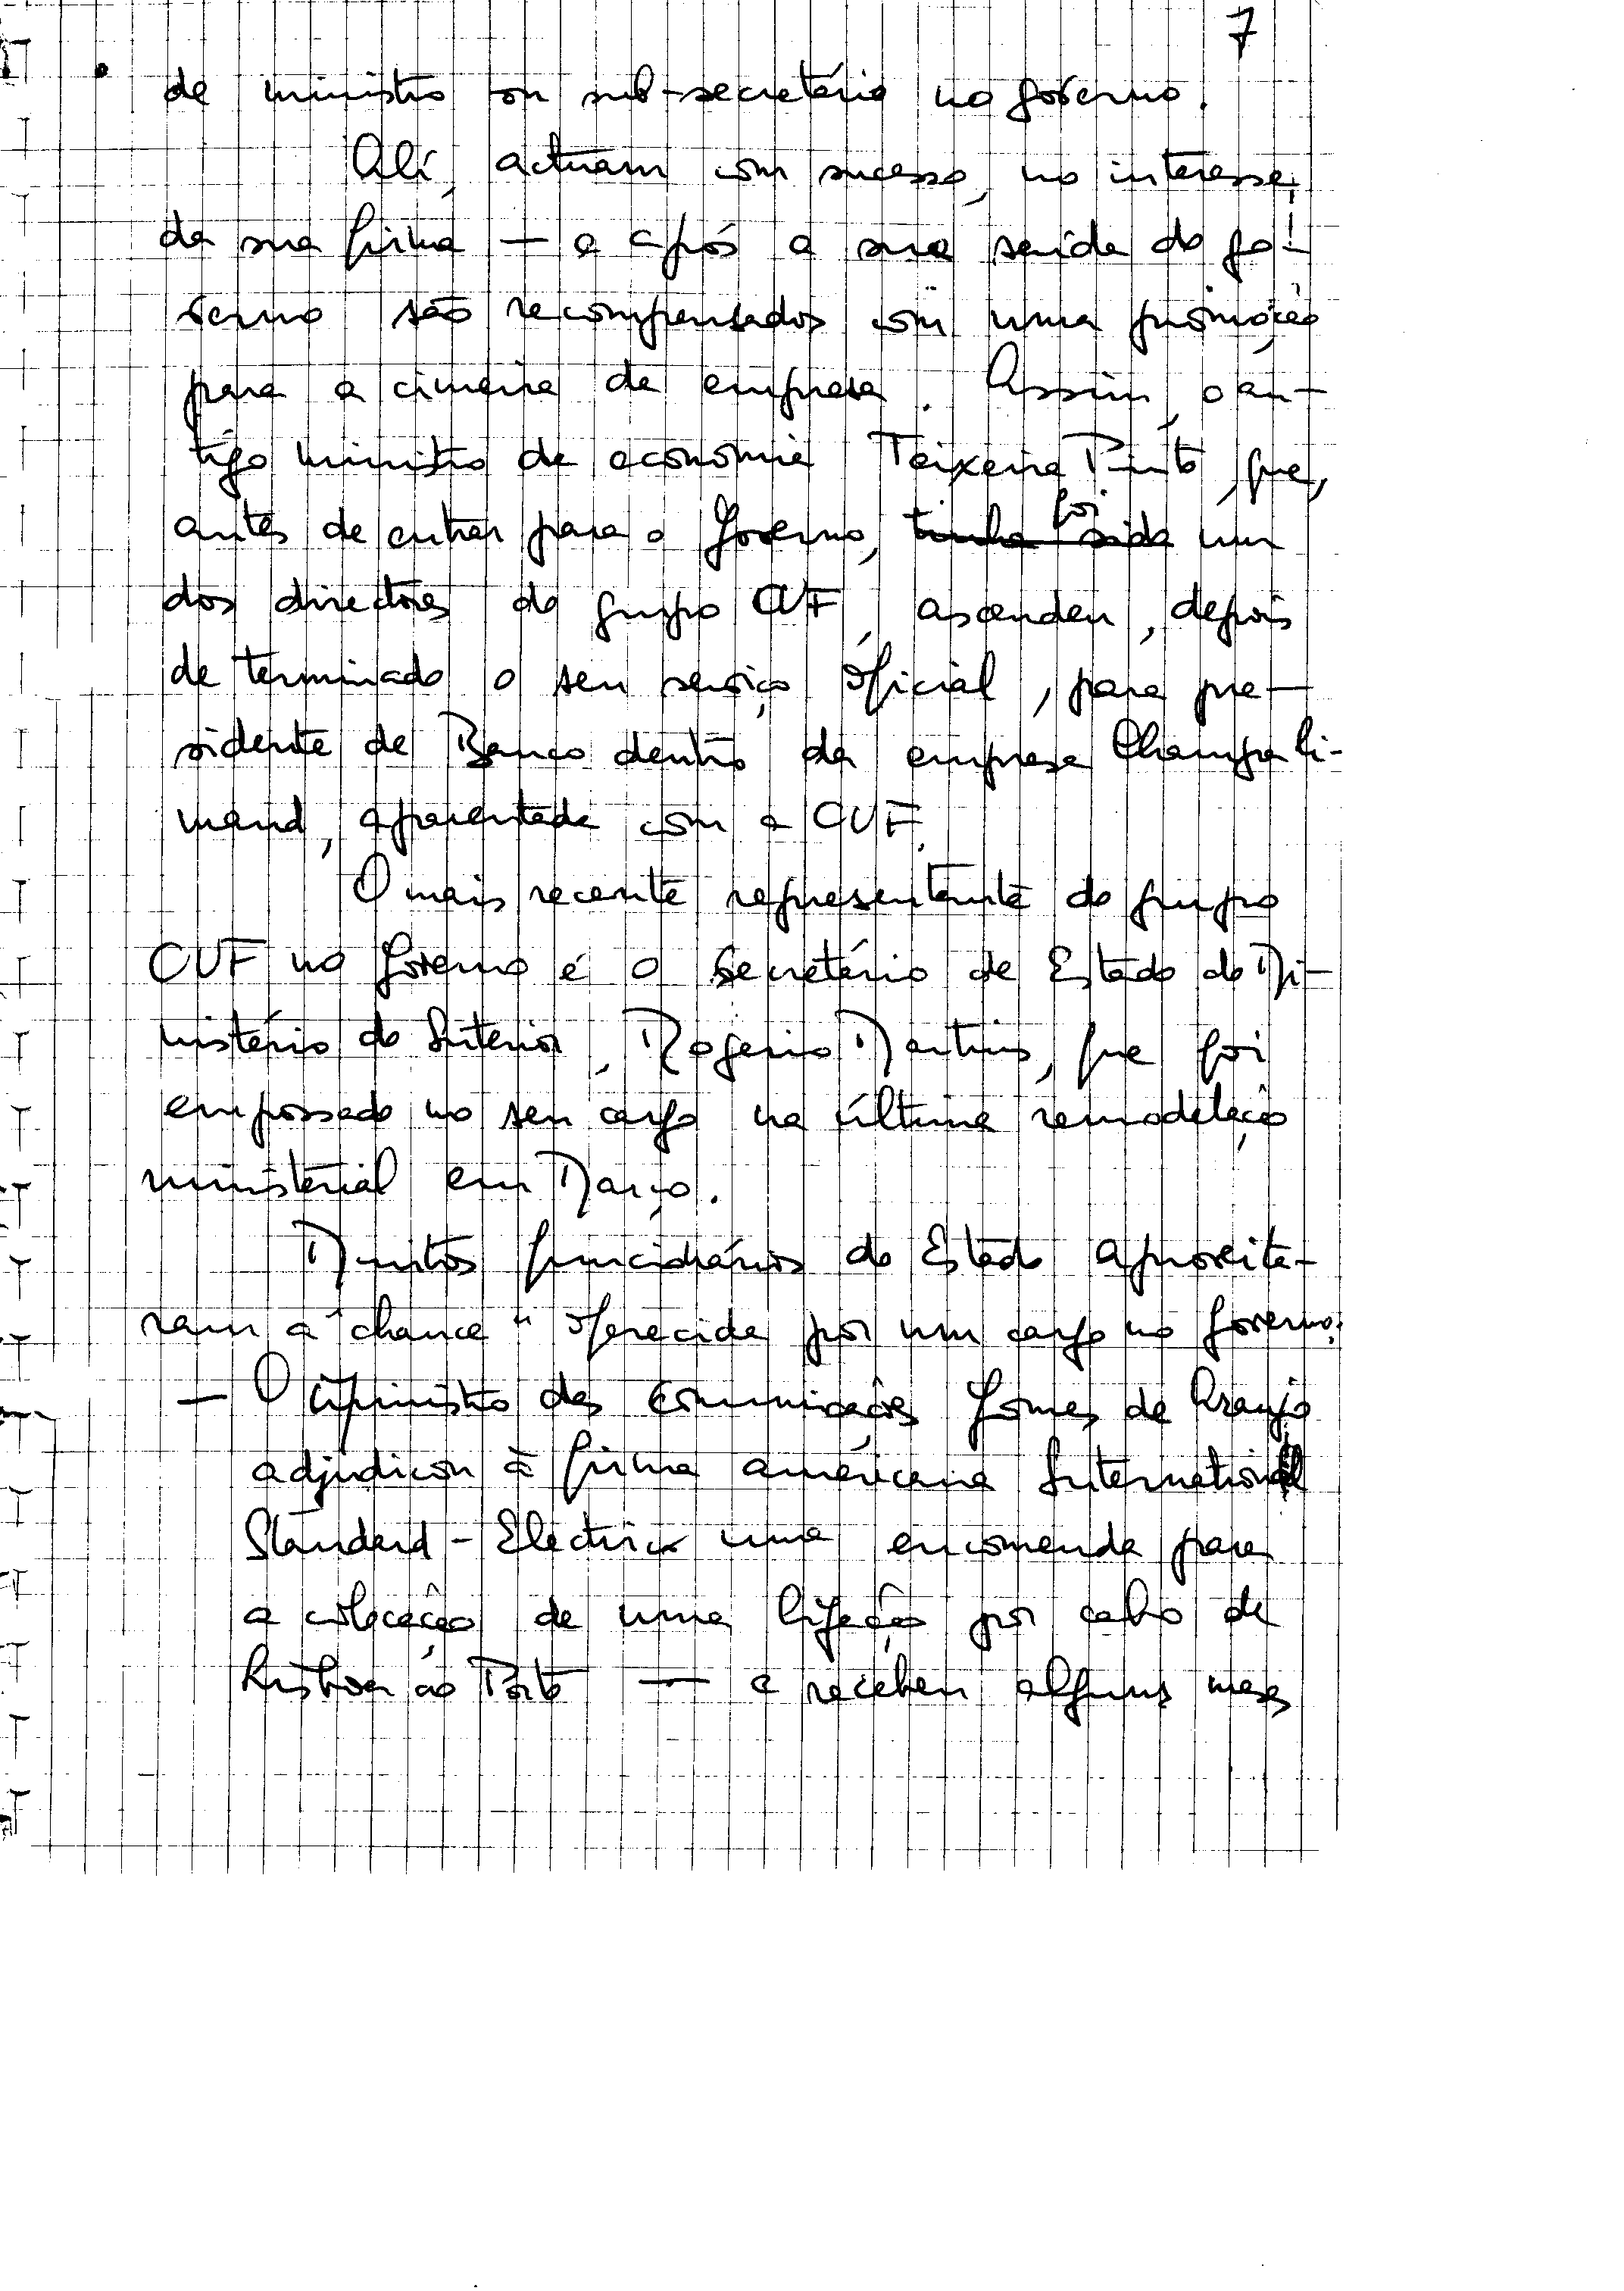 7
de ministro ou sub-secretário no governo.
Alí, actuam com sucesso, no interesse,
da sua firma — e após a sua saída do go-
verno são recompensados com uma promoção
para a cimeira da empresa. Assim, o an-
tigo ministro da economia Teixeira Pinto, que,
antes de entrar para o Governo, tinha sido foi um
dos directores do grupo CUF, ascendeu, depois
de terminado o seu serviço oficial, para pre-
sidente de Banco dentro da empresa Champali-
maud, aparentada com a CUF.
O mais recente representante do grupo
CUF no Governo é o Secretário de Estado do Mi-
nistério do Interior, Rogerio Martins, que foi
empossado no seu cargo na última remodelação
ministerial em Março.
Muitos funcionários do Estado aproveita-
ram a "chance" oferecida por um cargo no Governo:
— O ministro das Comunicações Gomes de Araujo
adjudicou à firma américana International
Standard-Electric uma encomenda para
a colocação de uma ligação por cabo de
Lisboa ao Porto — e recebeu alguns meses